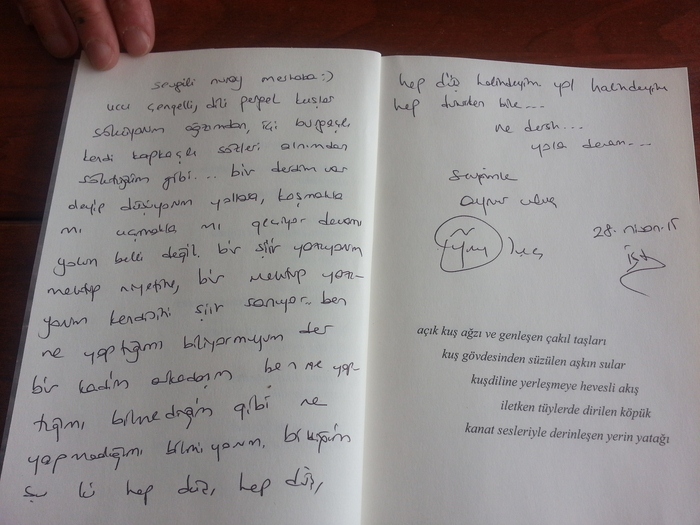 sevgili nuray merhaba :)
ucu çengelli, dili perpel kuşlar
söküyorum ağzımdan, içi burgaçlı
kendi kapkaçlı sözleri alnımdan
söktüğüm gibi... bir derdim var
deyip düşüyorum yollara, koşmakla
mı uçmakla mı geçiyor devamı
yolun belli değil. bir şiir yazıyorum
mektup niyetine, bir mektup yazı-
yorum kendisini şiir sanıyor. ben
ne yaptığımı biliyormuyum der
bir kadim arkadaşım ben ne yap-
tığımı bilmediğim gibi ne
yapmadığımı bilmiyorum. bildiğim
şu ki hep düz, hep düz,
hep düş halindeyim. yol halindeyim
hep dururken bile...
ne dersin...
yola devam...
sevgimle
aynur uluç
28. nisan. 15
ist
açık kuş ağzı ve genleşen çakıl taşları
kuş gövdesinden süzülen aşkın sular
kuşdiline yerleşmeye hevesli akış
iletken tüylerde dirilen köpük
kanat sesleriyle derinleşen yerin yatağı